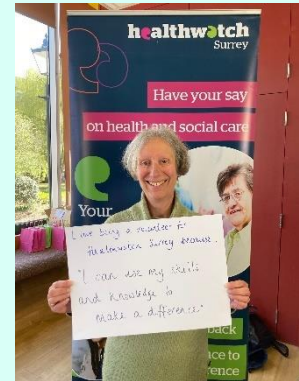 healthwatch
Surrey
Have your say
on health and social care
Your
I love being a volunteer for
Healthwatch Surrey because..
"I can use my skills
and knowledge to
make a difference."
back
nce to
erence